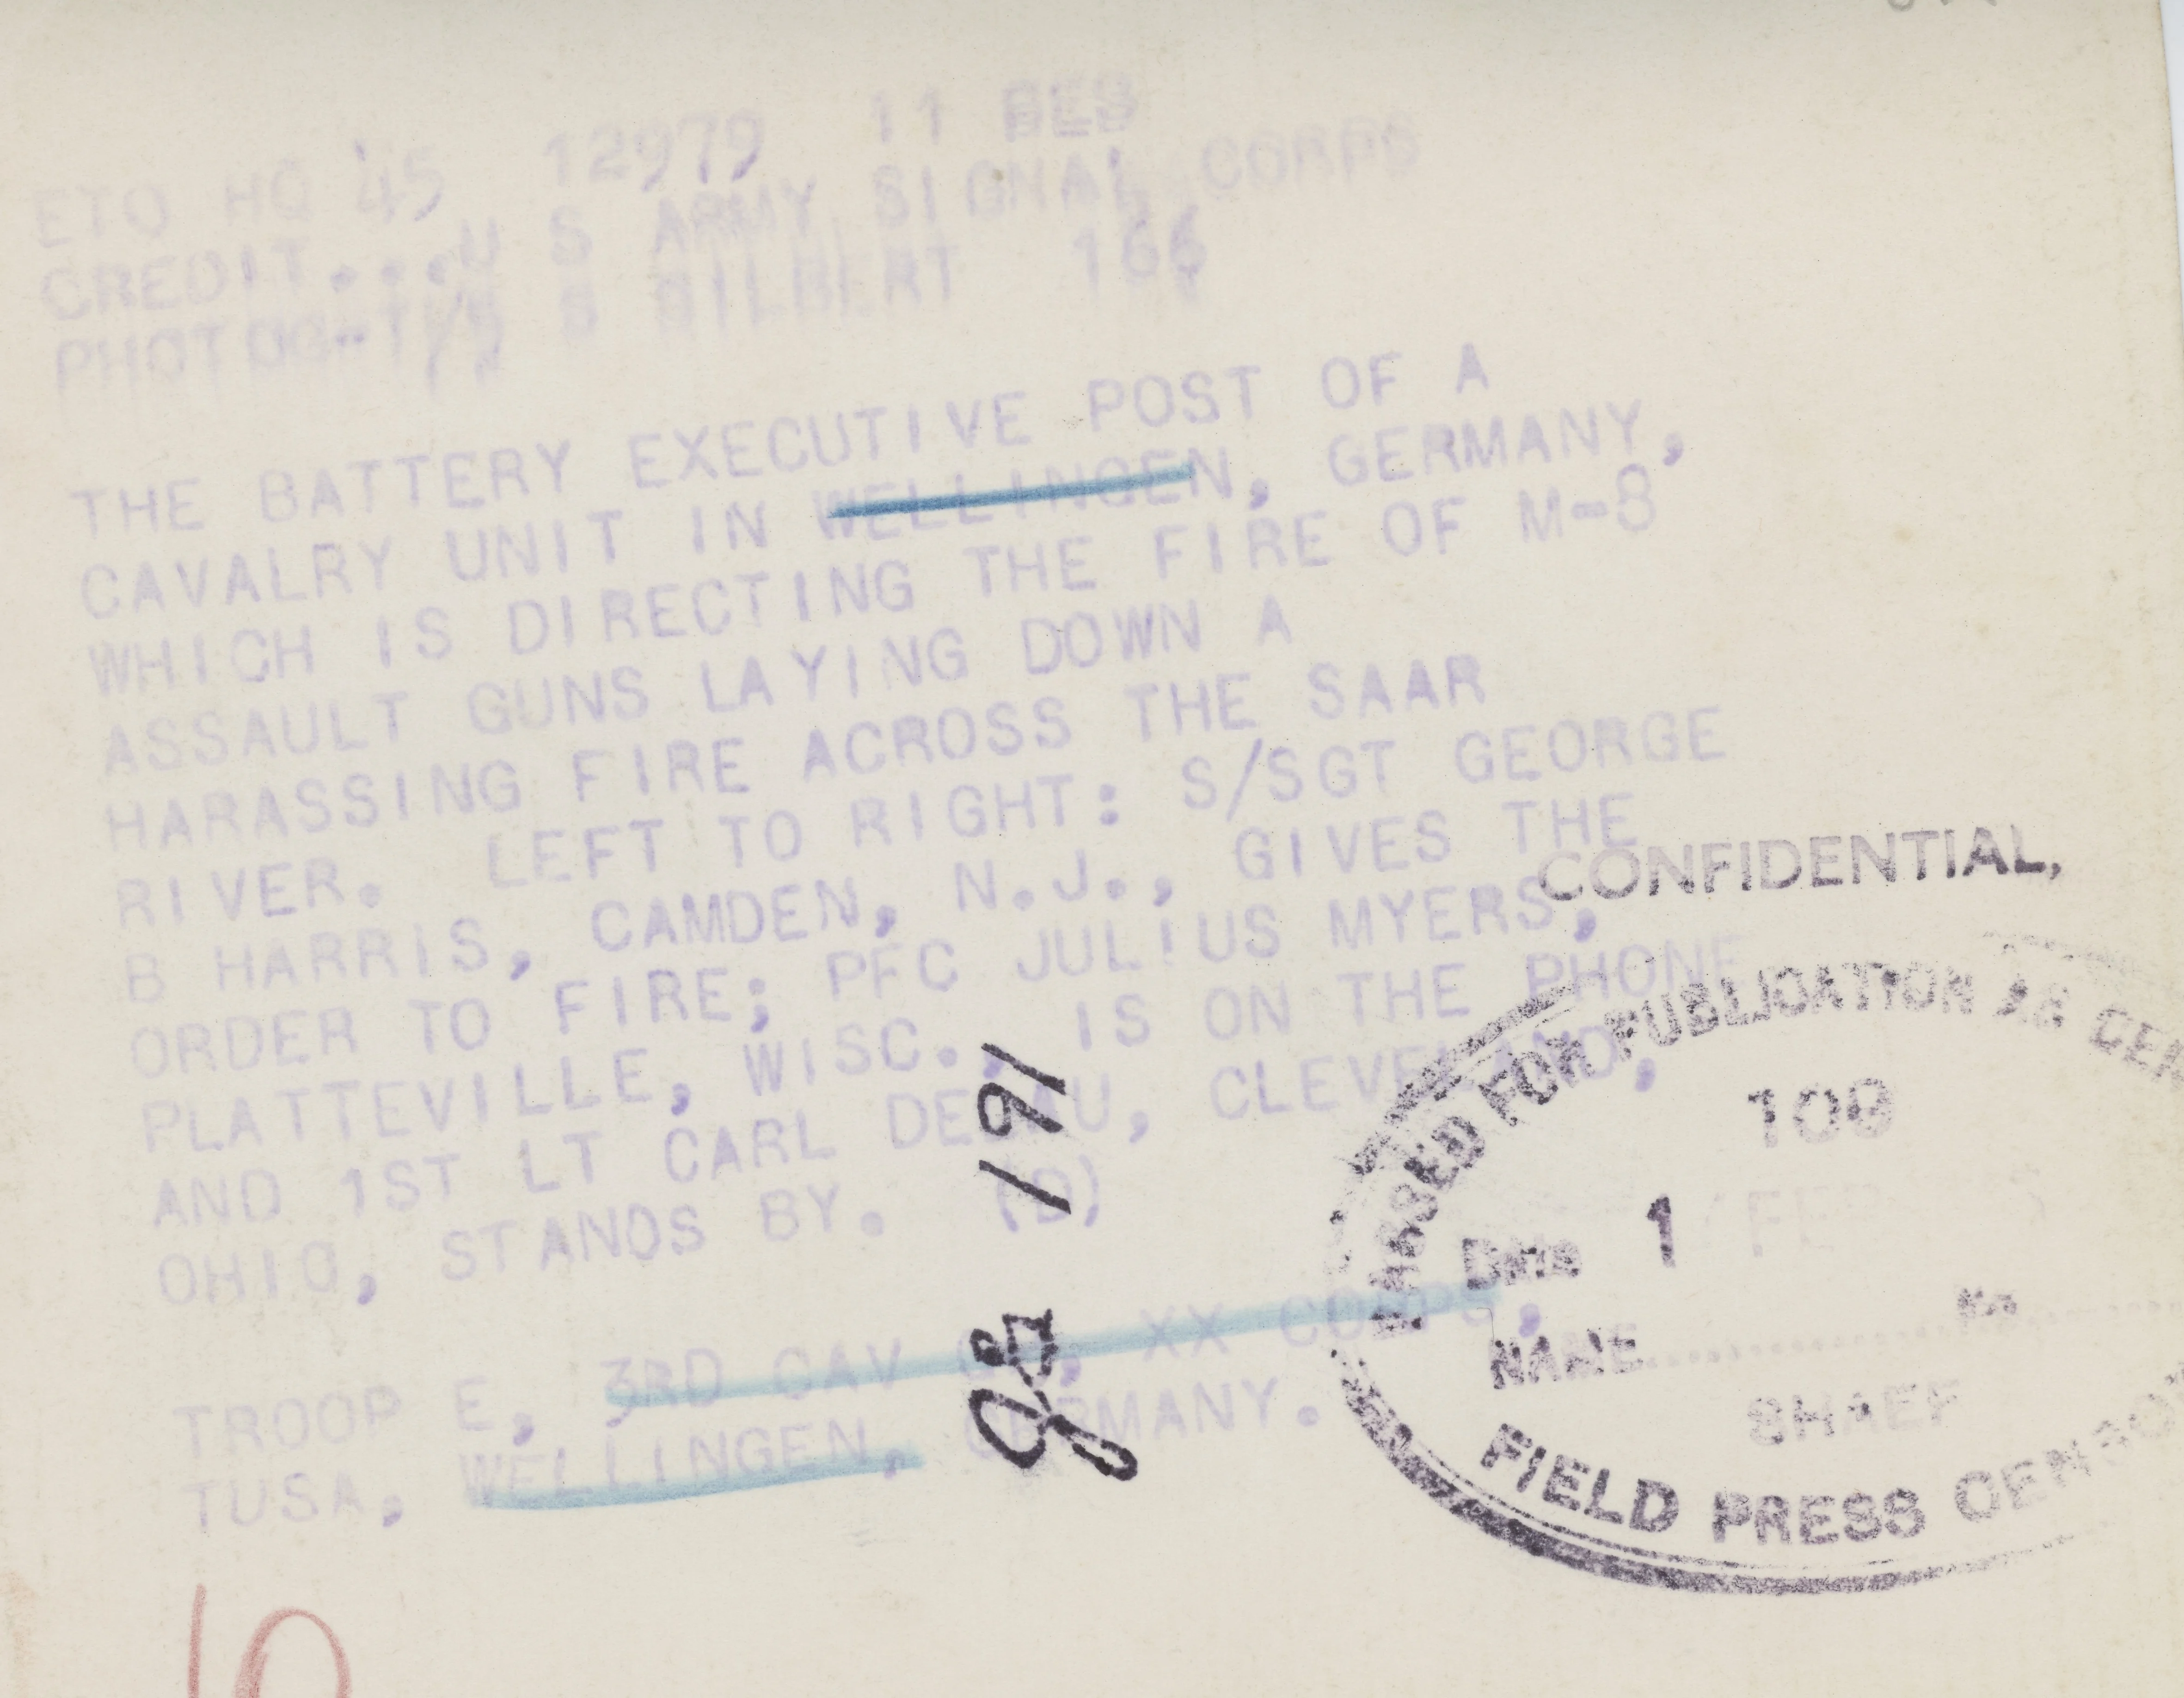 ETO HQ 45 12979 11 FEB
CREDIT...U S ARMY SIGNAL CORPS
PHOTOG-T/5 S GILBERT 166
THE BATTERY EXECUTIVE POST OF A
CAVALRY UNIT IN WELLINGEN, GERMANY,
WHICH IS DIRECTING THE FIRE OF M-8
ASSAULT GUNS LAYING DOWN A
HARASSING FIRE ACROSS THE SAAR
RIVER. LEFT TO RIGHT: S/SGT GEORGE
B HARRIS, CAMDEN, N.J., GIVES THE
ORDER TO FIRE; PFC JULIUS MYERS,
PLATTEVILLE, WISC., IS ON THE PHONE
AND 1ST LT CARL CLEVELAND,
OHIO, STANDS BY. (D)
TROOP E, 3RD CAV XX CORPS,
TUSA, WELLINGEN, GERMANY.
191
CONFIDENTIAL,
PASSED FOR PUBLICATION AS CEN
109
Date 1 FEB
NAME
SHAEF
FIELD PRESS CENSO
10